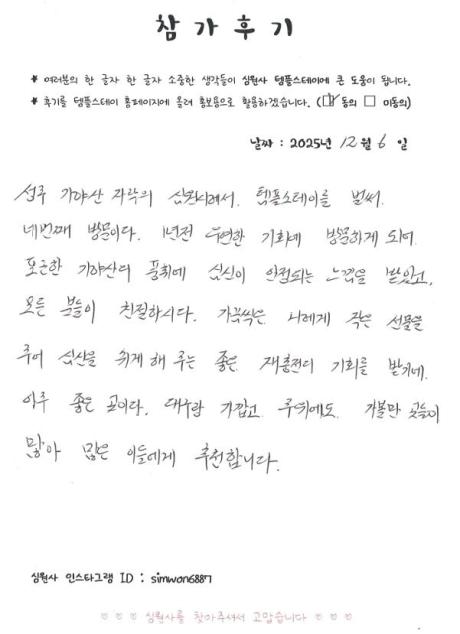 참가후기
★ 여러분의 한 글자 한 글자 소중한 생각들이 심원사 템플스테이에 큰 도움이 됩니다.
★ 후기를 템플스테이 홈페이지에 올려 홍보용으로 활용하겠습니다. (☑ 동의 □ 미동의)
날짜 : 2025년 12월 6일
성주 가야산 자락의 심원사에서. 템플스테이를 벌써.
네번째 방문이다. 1년전 우연한 기회에 방문하게 되어.
포근한 가야산의 풍취에 심신이 안정되는 느낌을 받았고.
모든 분들이 친절하시다. 가끔씩은 나에게 작은 선물을
주어 심신을 쉬게 해 주는 좋은 재충전의 기회를 받기에.
아주 좋은 곳이다. 대구랑 가깝고 주위에도 가볼만 곳들이
많아 많은 이들에게 추천합니다.
심원사 인스타그램 ID : simwon6887
♡ ♡ ♡ 심원사를 찾아주셔서 고맙습니다 ♡ ♡ ♡